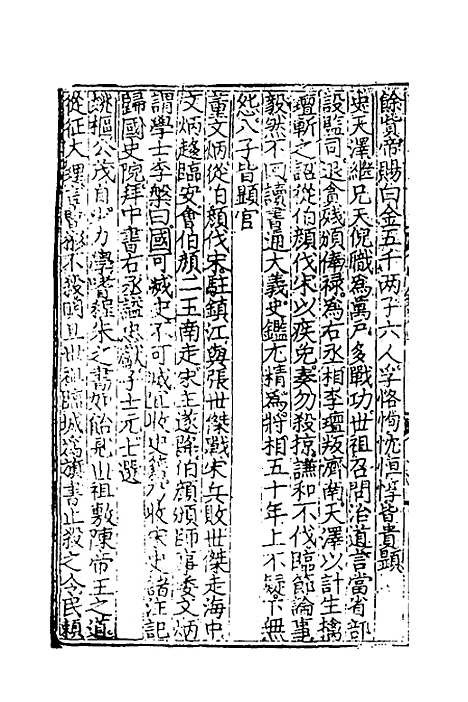 餘貲帝賜白金五千两子六人孚恪恂忱恒惇皆貴顯
史天澤繼兄天倪幟為萬戸多戰功世祖召問治道言當省部
設監司退貪殘頒俸禄為右丞相李璮叛濟南天澤以計生擒
璮斬之詔從伯顔伐宋以疾免奏勿殺掠謙和不伐臨節論事
毅然不囘讀書通大義史鑑尤精為將相五十年上不疑下無
怨八子皆顯官
董文炳從伯顔伐宋駐鎮江與張世傑戰宋兵敗世傑走海中
文炳趍臨安會伯顔二王南走宋主遂降伯顔頒師事委文炳
謂學士李槃曰國可滅史不可滅收史館乃收宋史諸注記
歸國史院拜中書右丞謚忠獻子士元士選
姚樞公茂自少力學嗜程朱之書如飴見世祖敷陳帝王之道
從征大理言曹彬不殺明旦世祖臨城為旗書止殺之令民頼